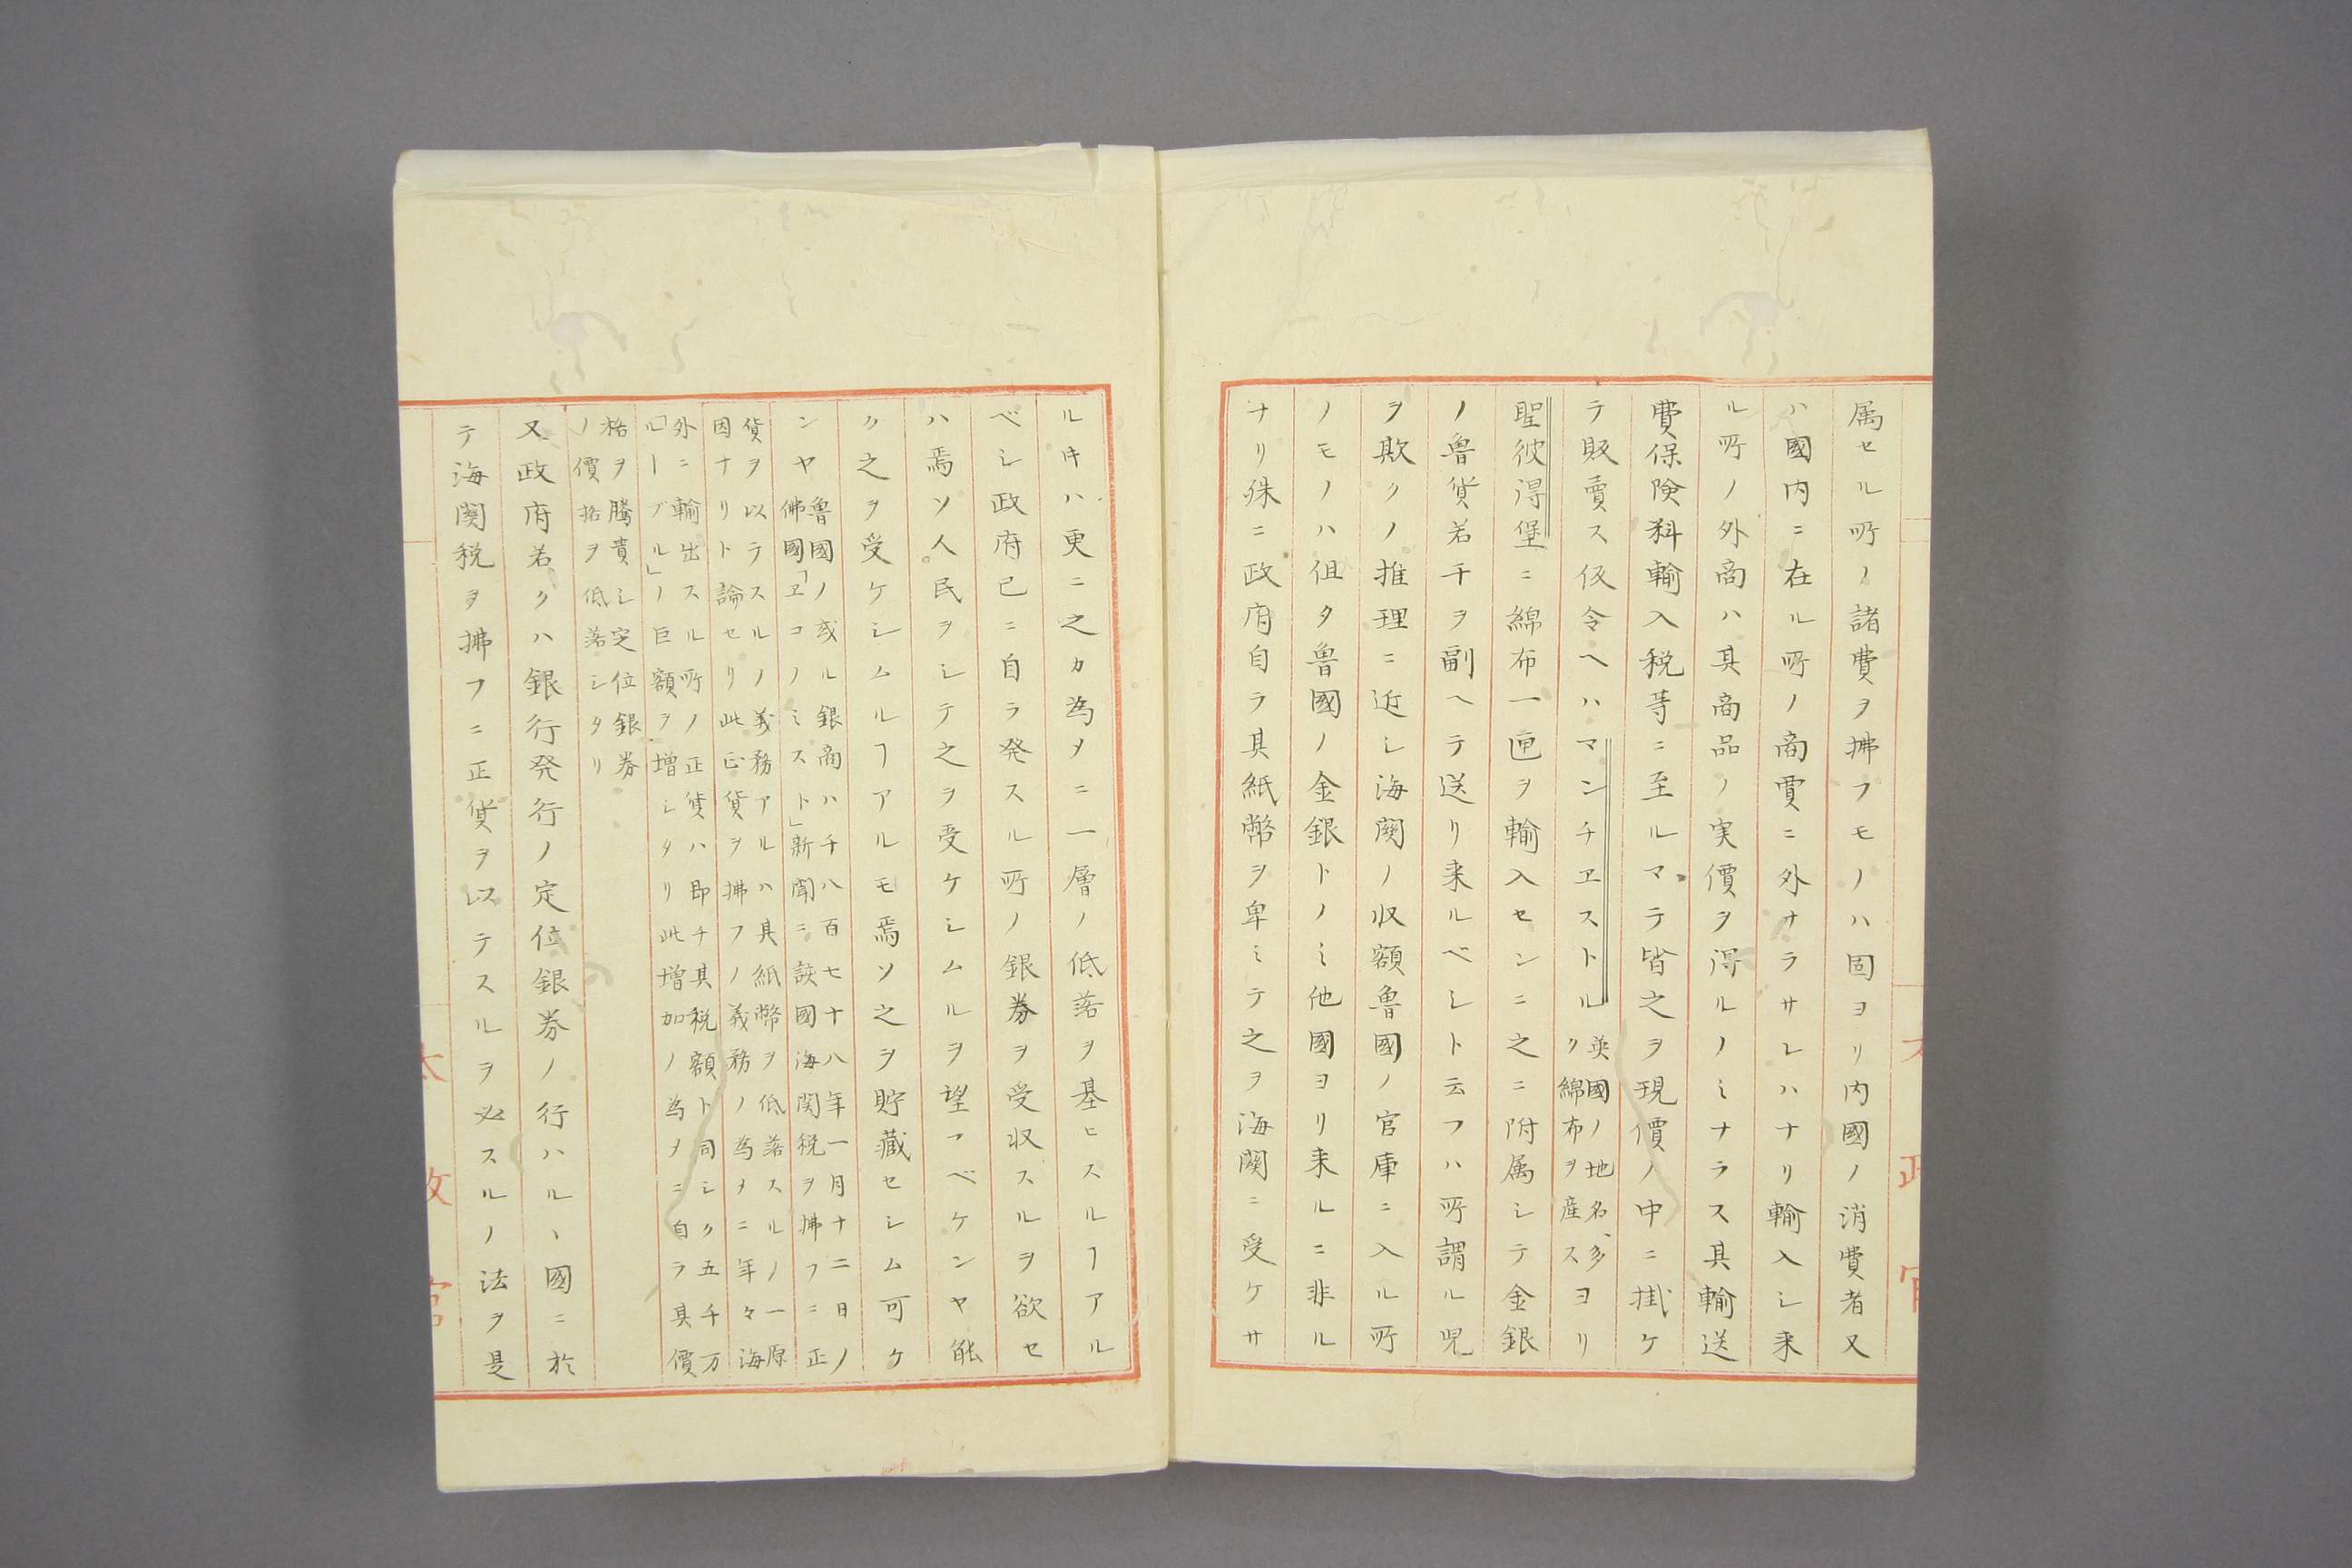 属セル所ノ諸費ヲ拂フモノハ固ヨリ内國ノ消費者又
ハ國内ニ在ル所ノ商賈ニ外ナラサレハナリ輸入シ来
ル所ノ外商ハ其商品ノ実價ヲ得ルノミナラス其輸送
費保険料輸入税等ニ至ルマテ皆之ヲ現價ノ中ニ掛ケ
テ販賣ス仮令ヘハマンチヱストル
英國ノ地名多
ク綿布ヲ産ス
ヨリ
聖彼得堡ニ綿布一匣ヲ輸入センニ之ニ附属シテ金銀
ノ魯貨若干ヲ副ヘテ送リ来ルベシト云フハ所謂ル児
ヲ欺クノ推理ニ近シ海関ノ収額魯國ノ官庫ニ入ル所
ノモノハ但タ魯國ノ金銀トノミ他國ヨリ来ルニ非ル
ナリ殊ニ政府自ラ其紙幣ヲ卑ミテ之ヲ海関ニ受ケサ
ルキハ更ニ之カ為メニ一層ノ低落ヲ基ヒスルヿアル
ベシ政府已ニ自ラ発スル所ノ銀券ヲ受収スルヲ欲セ
ハ焉ソ人民ヲシテ之ヲ受ケシムルヲ望フベケンヤ能
ク之ヲ受ケシムルヿアルモ焉ソ之ヲ貯藏セシム可ケ
ンヤ
魯國ノ或ル銀商ハ千八百七十八年一月十二日ノ
佛國「ヱコノミスト」新聞ニ該國海関税ヲ拂フニ正
貨ヲ以テスルノ義務アルハ其紙幣ヲ低落スルノ一原
因ナリト論セリ此正貨ヲ拂フノ義務ノ為メニ年々海
外ニ輸出スル所ノ正貨ハ即チ其税額ト同シク五千万
「ルーブル」ノ巨額ヲ増シタリ此増加ノ為メニ自ラ其價
格ヲ騰貴シ定位銀券
ノ價格ヲ低落シタリ
又政府若クハ銀行発行ノ定位銀券ノ行ハル丶國ニ於
テ海関税ヲ拂フニ正貨ヲ以テスルヲ必スルノ法ヲ是
太政官
太政官